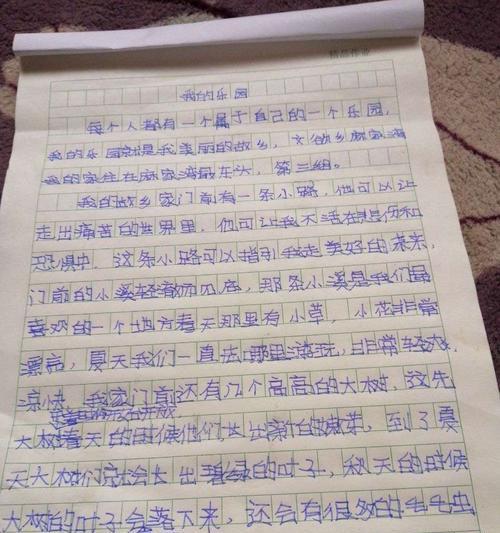 精品作业
我的乐园
每个人都有一个属于自己的一个乐园,
我的乐园就是我美丽的故乡,文
我的家住在麻家湾最车头,第三组。
我的故乡家门前有一条小路,他可以让
走出痛苦的世界里,他可让我不活在悲伤和
恐惧中,这条小路可以指引我走美好的未来,
门前的小溪轻澈见底,那条小溪是我们最
喜欢的一个地方春天那里有小草,小花非常
漂亮,夏天我们一直去哪里游玩,非常
凉快,我家门前还有几个高高的大树,这先
大树春天的时候他们长出新的嫩芽,到了夏
天大树们就会长出碧绿的叶子,秋天的时候
大树的叶子会落下来,还会有很多的毛毛虫